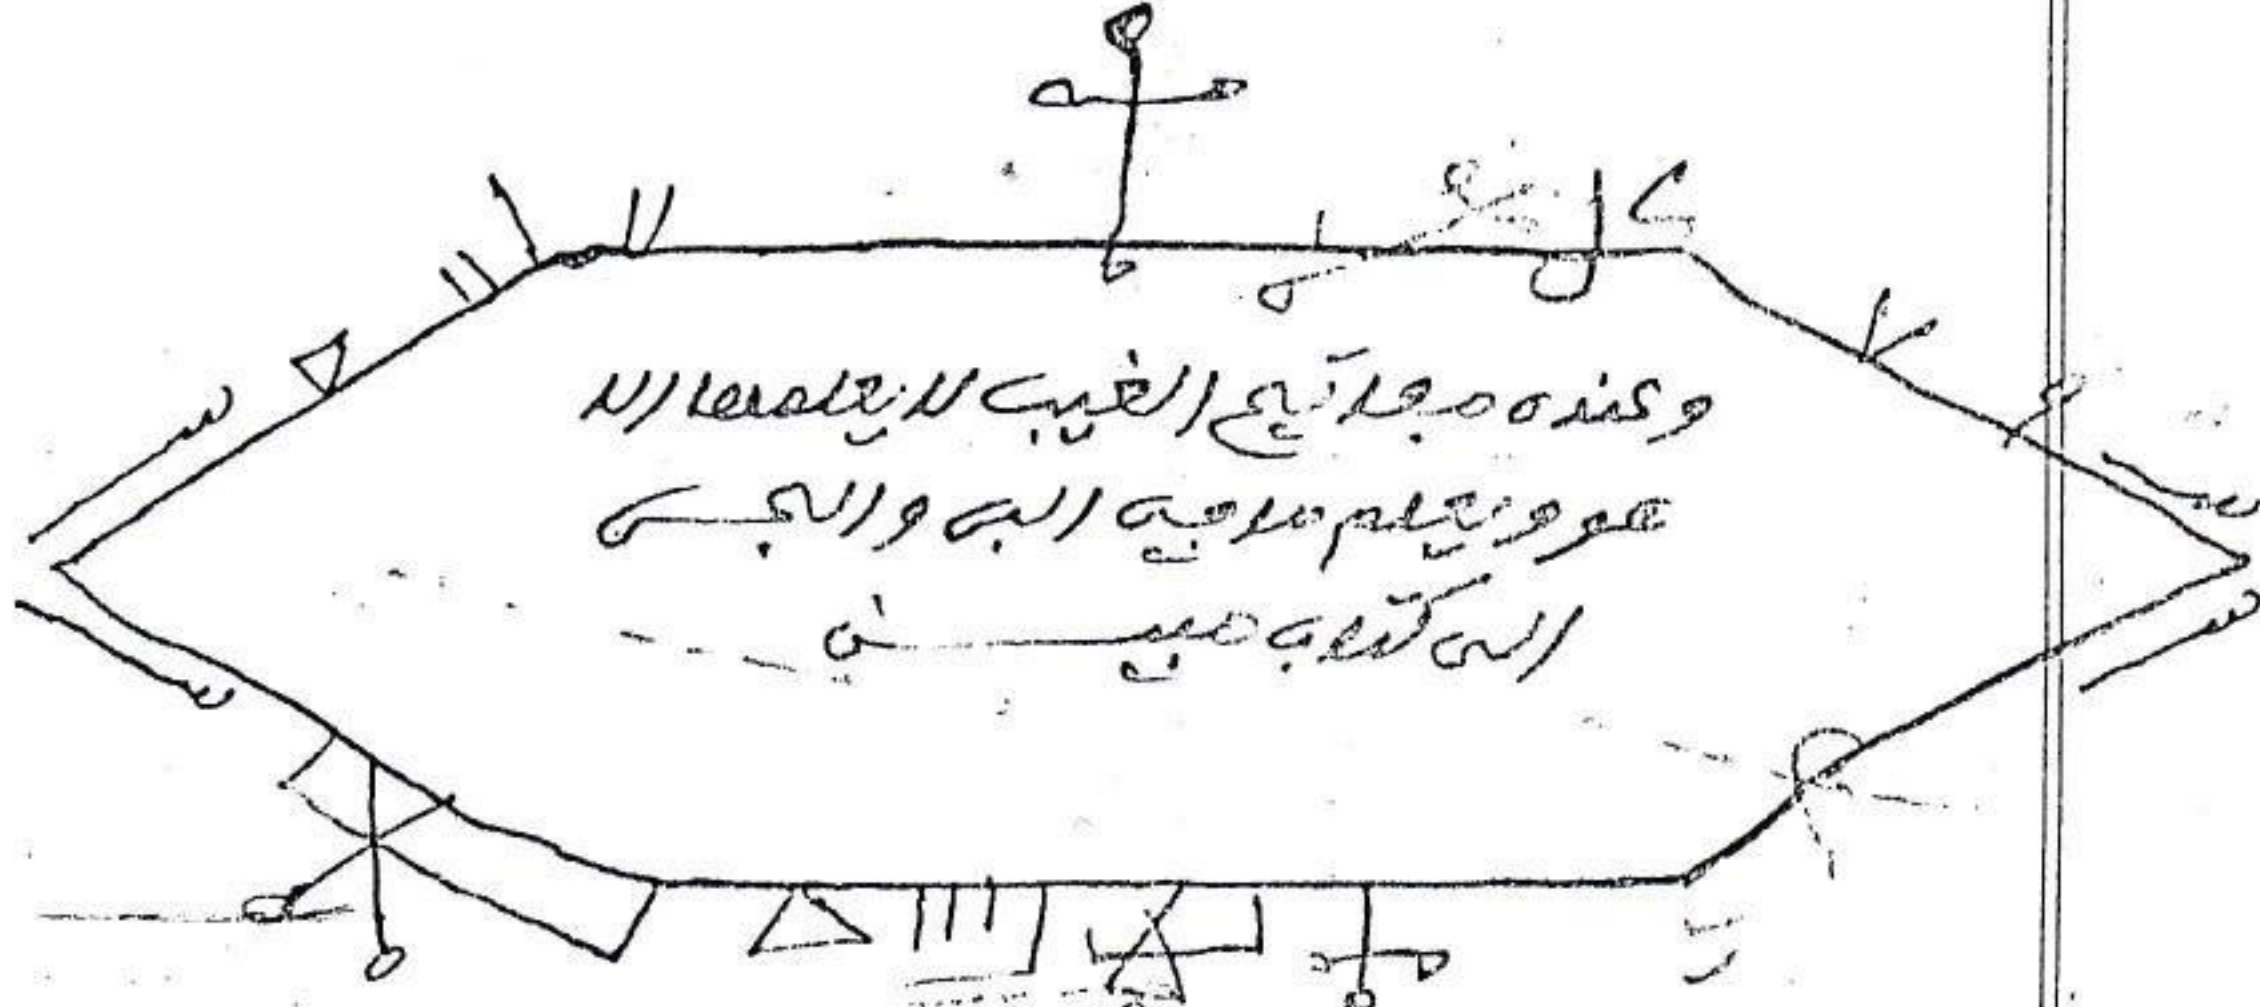 وعنده مفاتيح الغيب لا يعلمها الا
هو ويعلم ما في البر والبحر
الى كتاب مبين